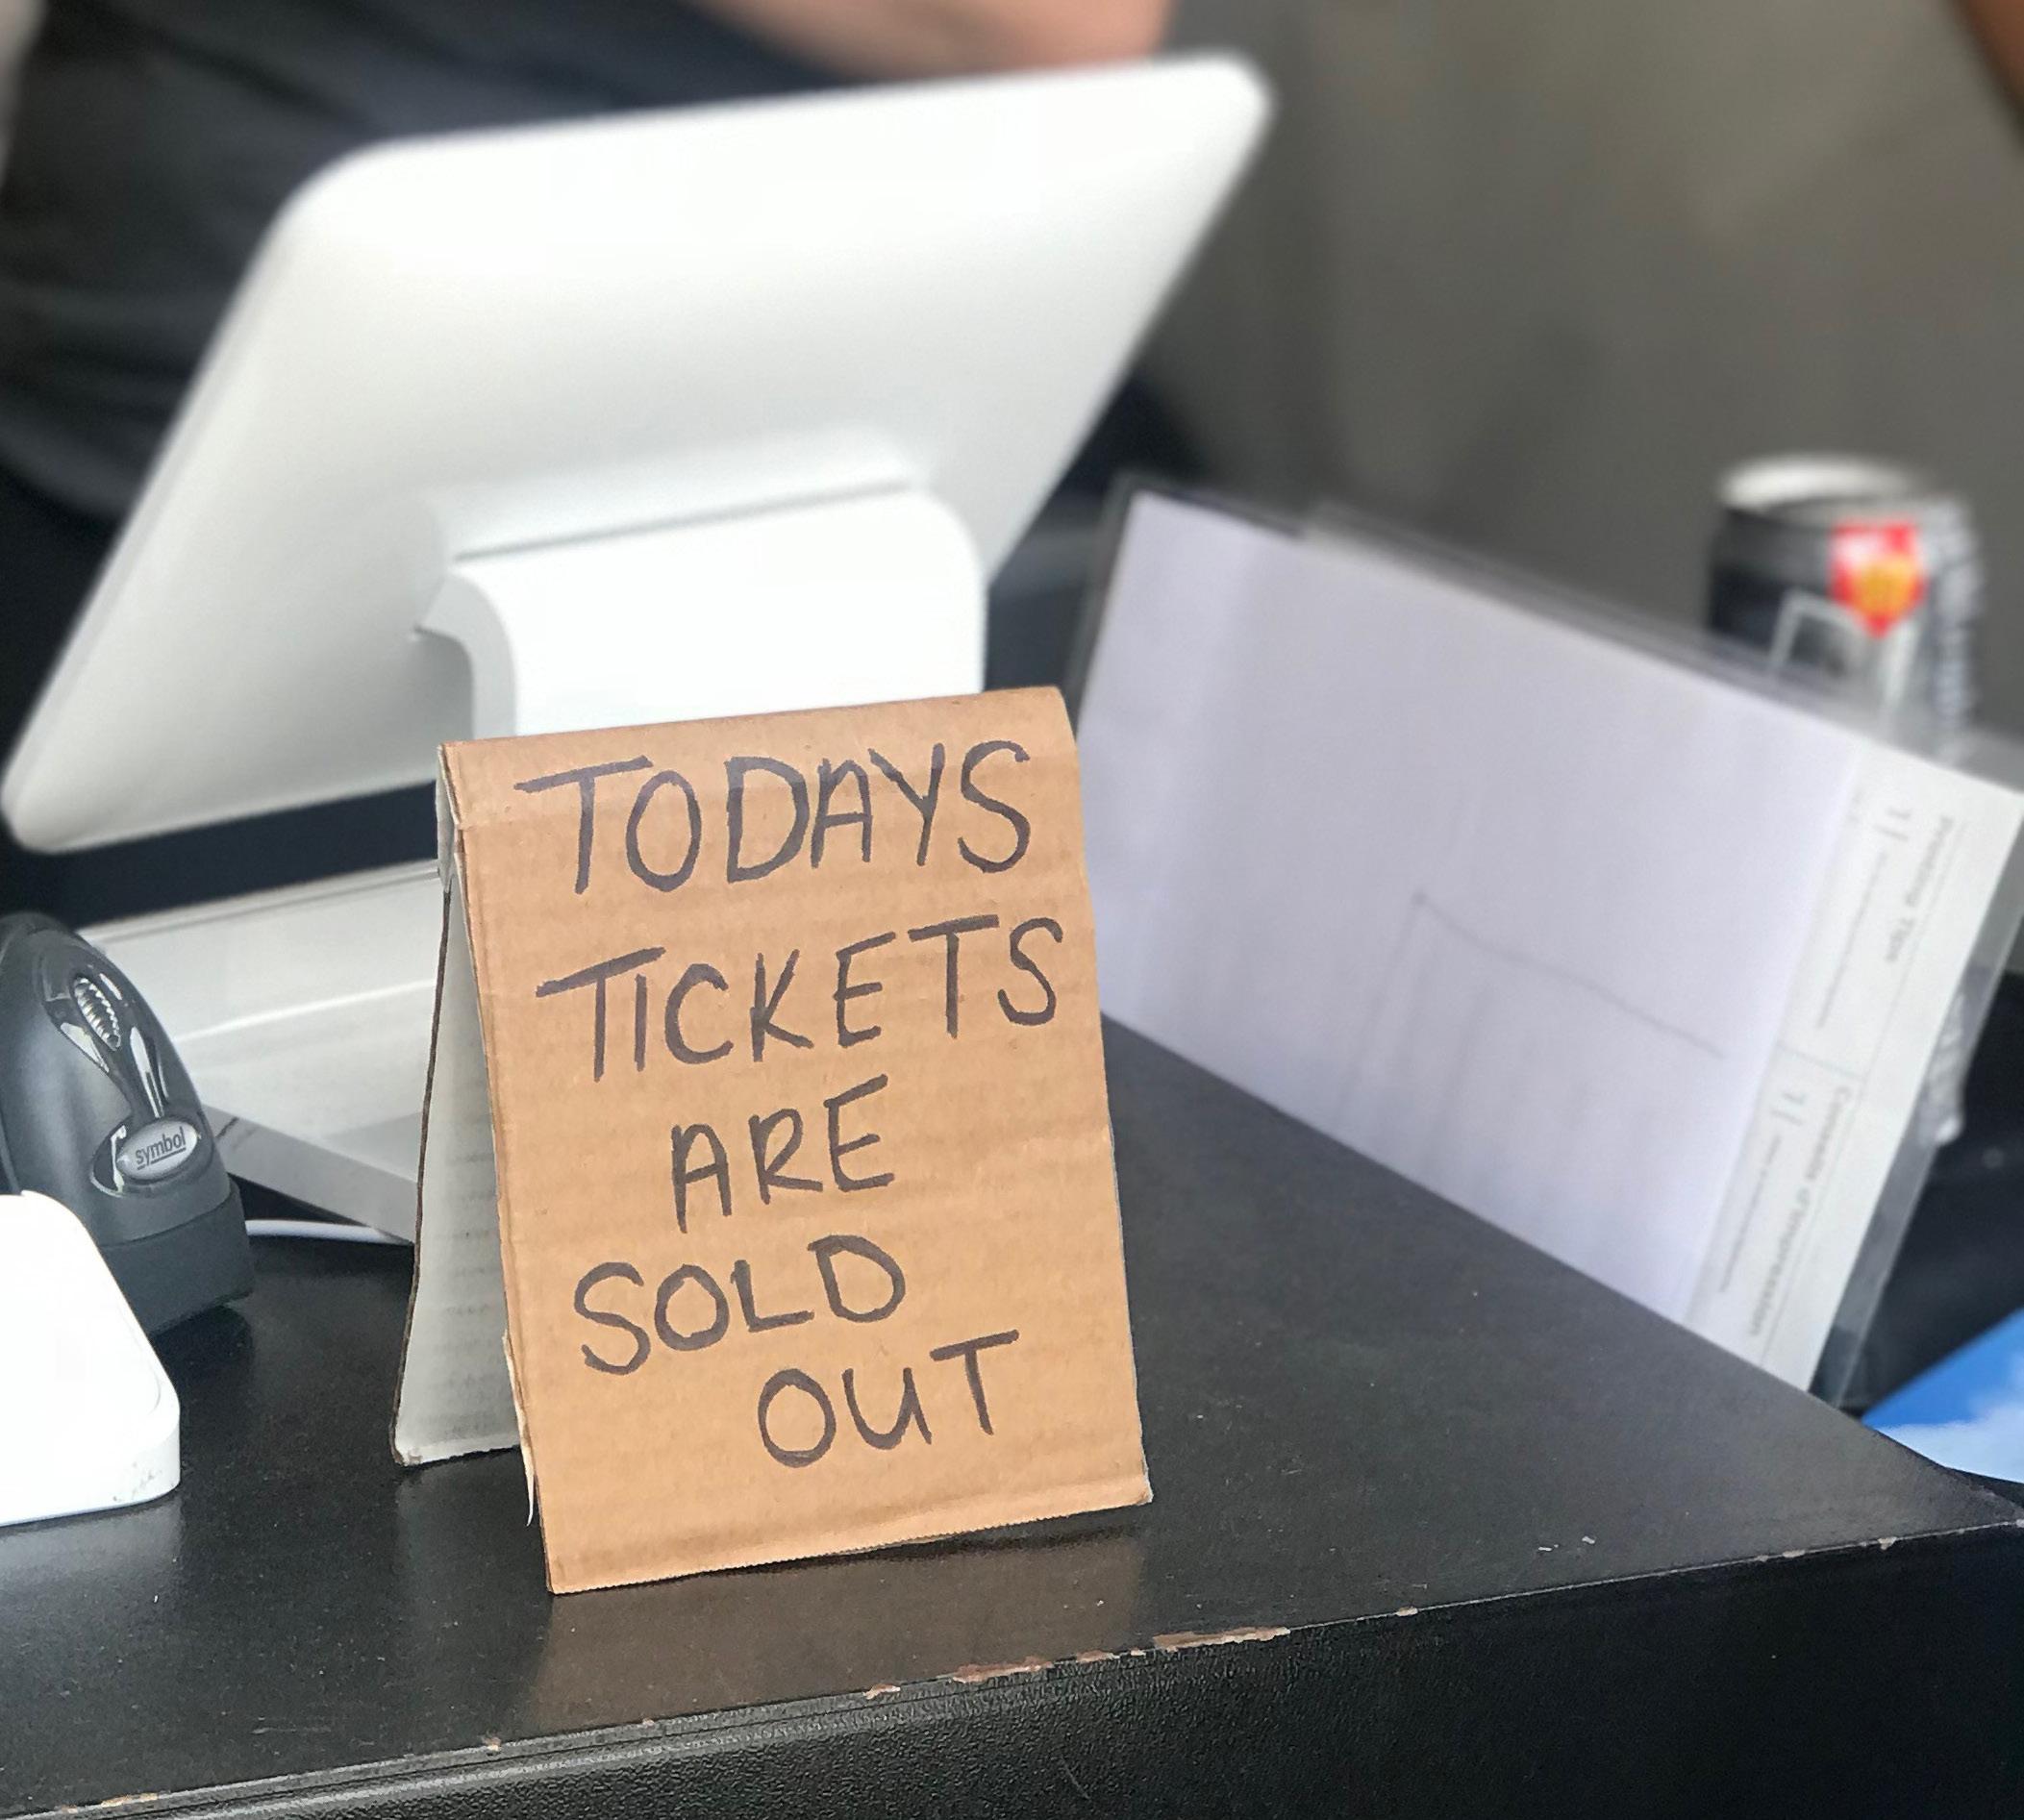 TODAYS
TICKETS
ARE
SOLD
OUT
symbol